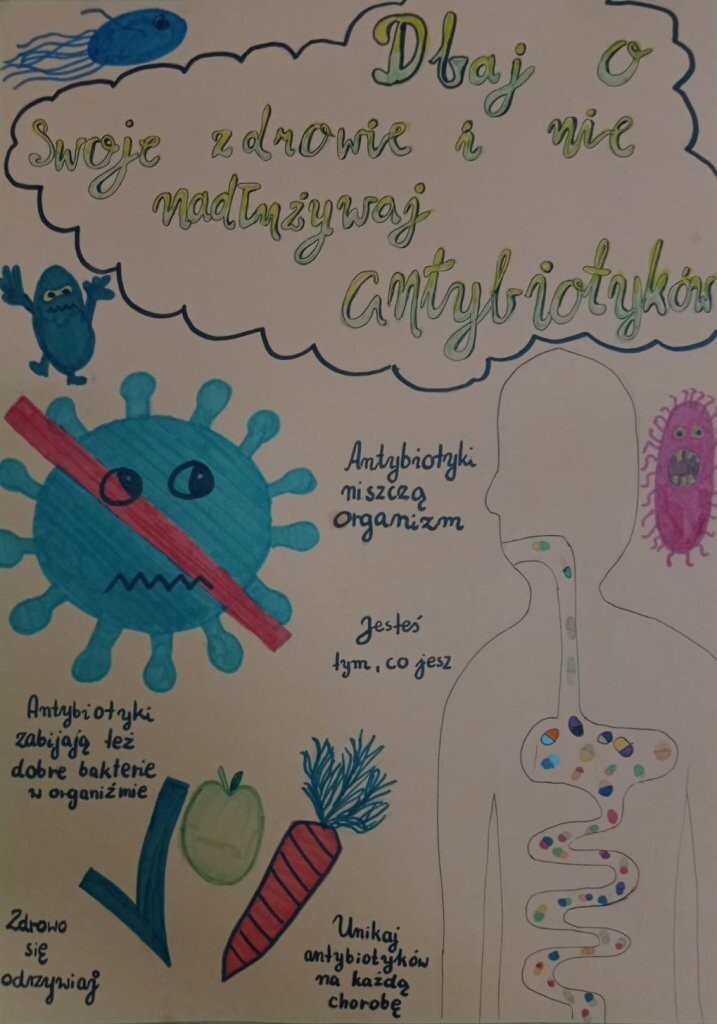 Dbaj o
swoje zdrowie i nie
nadłużywaj
antybiotyków
Antybiotyki
niszczą
organizm
Jesteś
tym, co jesz
Antybiotyki
zabijają też
dobre bakterie
w organiźmie
Zdrowo
się
odrzywiaj
Unikaj
antybiotyków
na każdą
chorobę